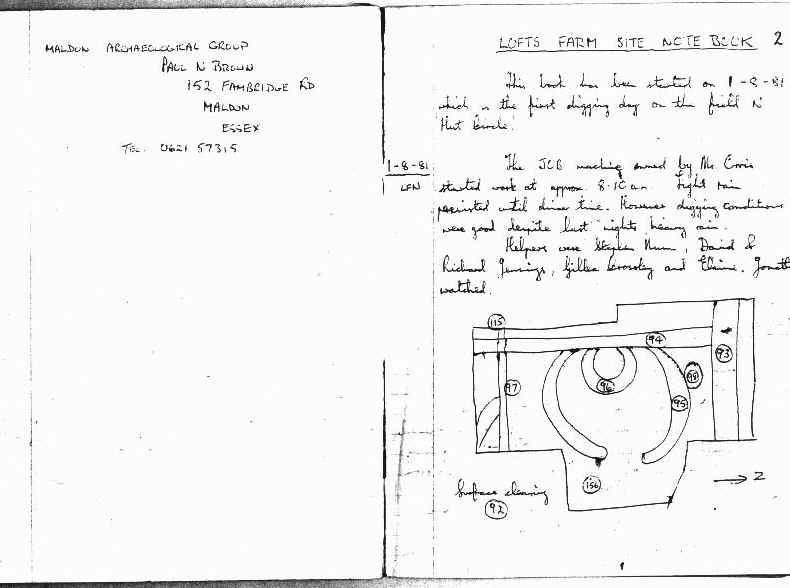 MALDON ARCHAEOLOGICAL GROUP
PAUL N BROWN
152 FAMBRIDGE RD
MALDON
ESSEX
TEL. 0621 57315
LOFTS FARM SITE NOTE BOOK 2
This book has been started on 1-8-81
which is the first digging day on the field N
'Hut Circle'.
1-8-81
LFN
The JCB machine owned by Mr
started work at approx 8.10am Light rain
persisted until dinner time. However digging conditions
were good despite last nights heavy rain.
Helpers were Stephen Nunn, David &
Richard Jennings, Gillian Crossley and Elaine. Jonath
watched.
115
94
93
98
97
96
95
156
Surface cleaning
92
→ Z
1